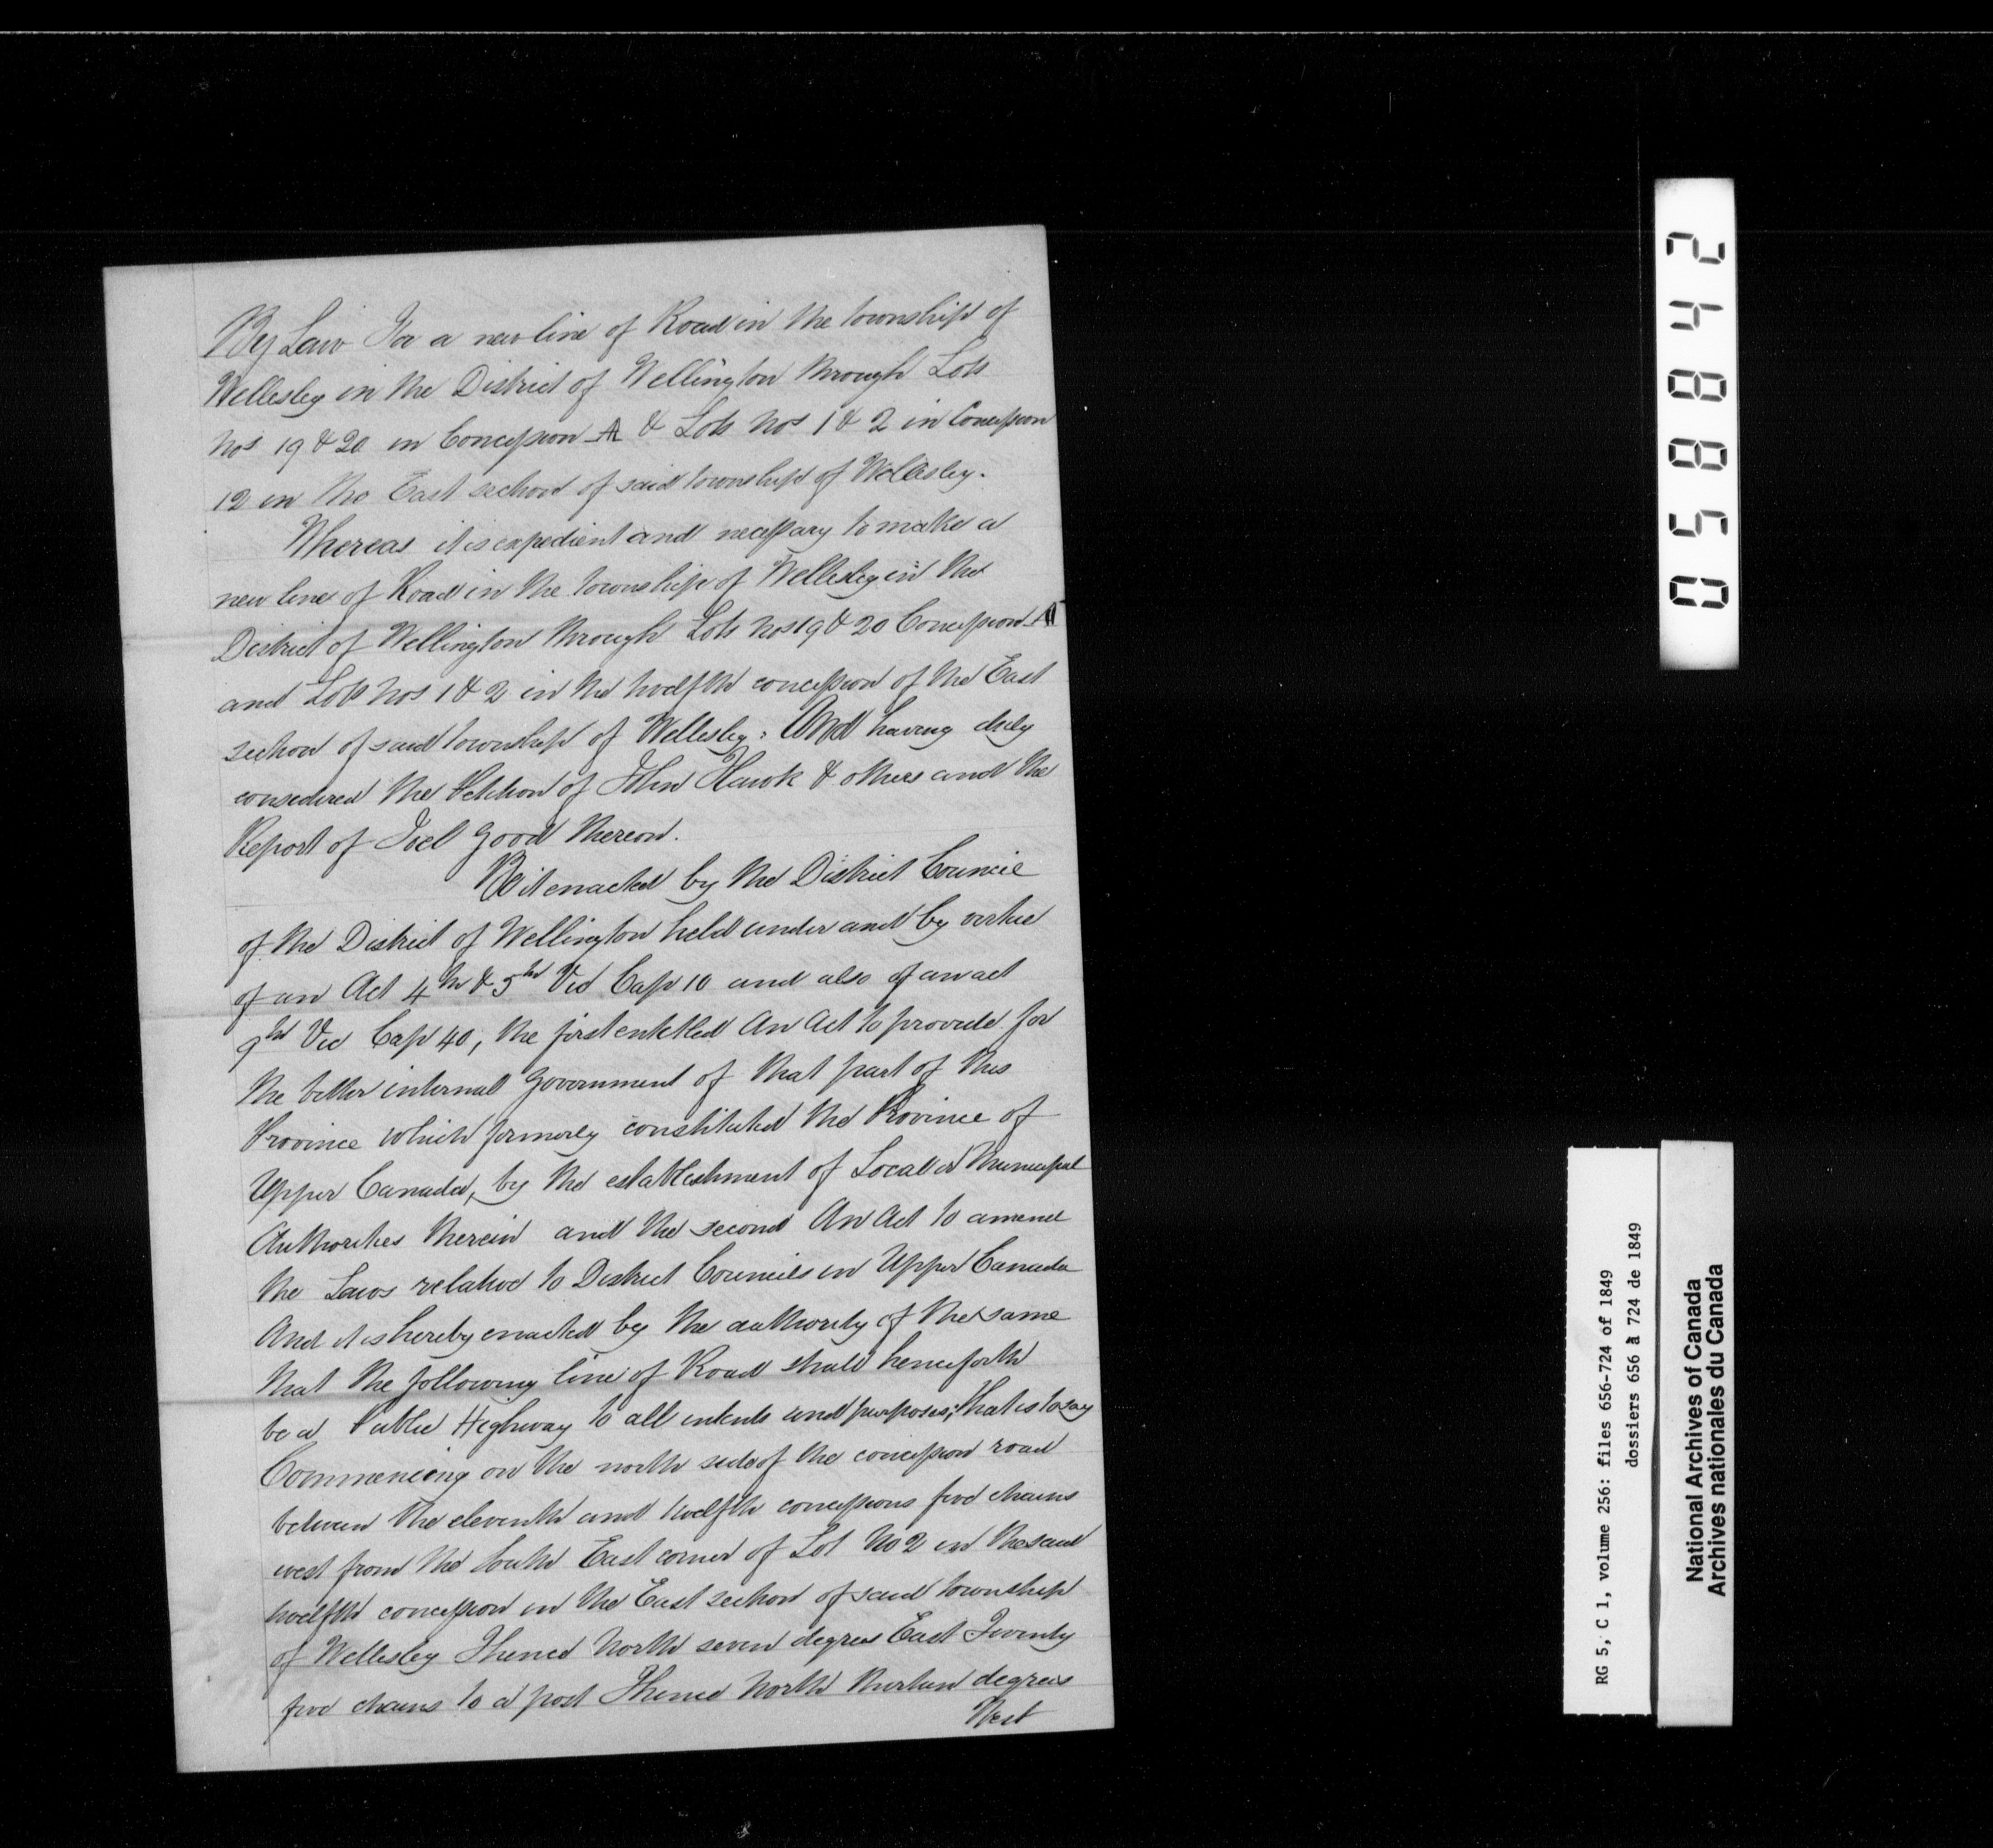 By Law For a new line of Road in the township of
Wellesley in the District of Wellington through Lots
Nos 19 & 20 in Concession A & Lots Nos 1 & 2 in Concession
12 in the East section of said township of Wellesley.
Whereas it is expedient and necessary to make a
new line of Road in the township of Wellesley in the
District of Wellington through Lots Nos 19 & 20 Concession A
and Lots Nos 1 & 2 in the twelfth concession of the East
section of said township of Wellesley; And having duly
considered the Petition of John Hawk & others and the
Report of Joel Good thereon.
Be it enacted by the District Council
of the District of Wellington held under and by virtue
of an Act 4th & 5th Vic Cap 10 and also of an act
9th Vic Cap 40, the first entitled An Act to provide for
the better internal Government of that part of this
Province which formerly constituted the Province of
Upper Canada, by the establishment of Local or Municipal
Authorities therein and the second An Act to amend
the Laws relative to District Councils in Upper Canada
And it is hereby enacted by the authority of the same
that the following line of Road shall henceforth
be a Public Highway to all intents and purposes; that is to say
Commencing on the north side of the concession road
between the eleventh and twelfth concessions five chains
west from the South East corner of Lot No 2 in the said
twelfth concession in the East section of said township
of Wellesley Thence North seven degrees East Twenty
five chains to a post Thence North thirteen degrees
West
058842
RG 5, C 1, volume 256: files 656-724 of 1849
dossiers 656 à 724 de 1849
National Archives of Canada
Archives nationales du Canada